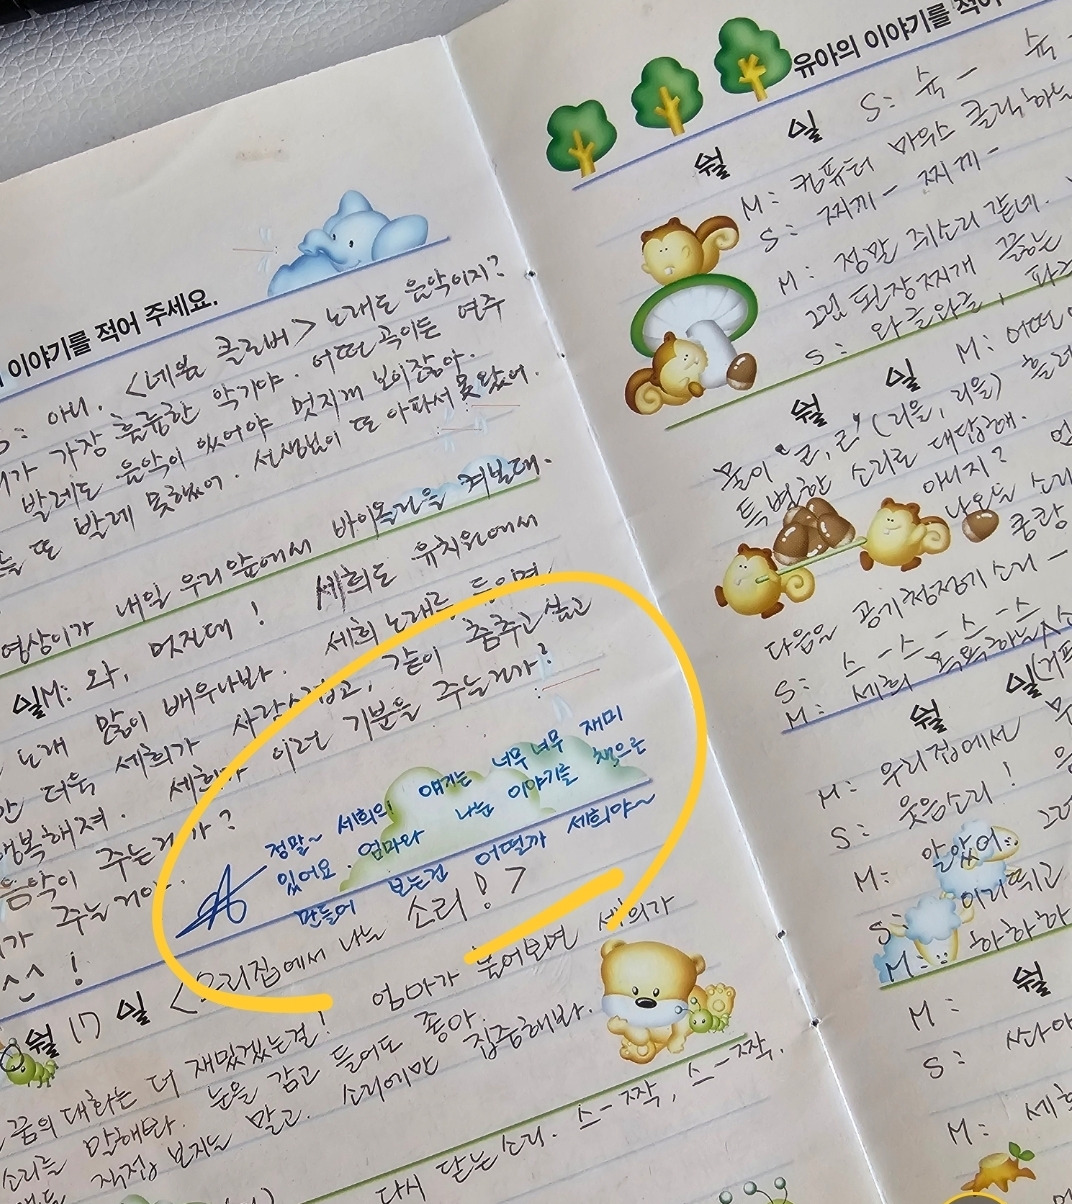 이야기를 적어 주세요.
아니. <네잎 클로버> 노래도 음악이지?
가장 훌륭한 악기야. 어떤 곡이든 연주
발레도 음악이 있어야 멋지게 보이잖아.
또 발레 못했어. 선생님이 또 아파서 못 왔어.
영상이가 내일 우리 앞에서 바이올린을 켜본대.
일 M: 와, 멋진데! 세희도 유치원에서
노래 많이 배우나봐. 세희 노래를 들으면
더욱 세희가 사랑스럽고, 같이 춤추고 싶고
행복해져. 세희가 이런 기분을 주는거가?
음악이 주는거가?
가 주는거야.
정말~ 세희의 얘기는 너무 너무 재미
있어요. 엄마와 나눈 이야기를 책으로
만들어 보는건 어떨까 세희야~
월 17 일 <우리집에서 나는 소리!>
꿈의 대화는 더 재밌겠는걸! 엄마가 물어보면 세희가
소리를 말해봐. 눈을 감고 들어도 좋아.
직접 보지는 말고. 소리에만 집중해봐.
다시 닫는 소리. 스-짝, 스-짝.
유아의 이야기를 적어
월 일 S: 슉- 슉-
M: 컴퓨터 마우스 클릭하는
S: 찌끼- 찌끼-
M: 정말 쥐소리 같네.
그럼 된장찌개 끓는
S: 와글와글,
월 일 M: 어떤
물이 "ㄹ,ㄹ" (리을, 리을) 흘러
특별한 소리로 대답해.
아버지?
나오는 소리
쿵쾅
다음은 공기청정기 소리-
S: 스-스-스-스
M: 세희 목욕하는
월 일
M: 우리집에서
S: 웃음소리!
M: 알았어. 그
S: 이리찍고
M: 하하하
월
M:
S: 사나
M: 세희